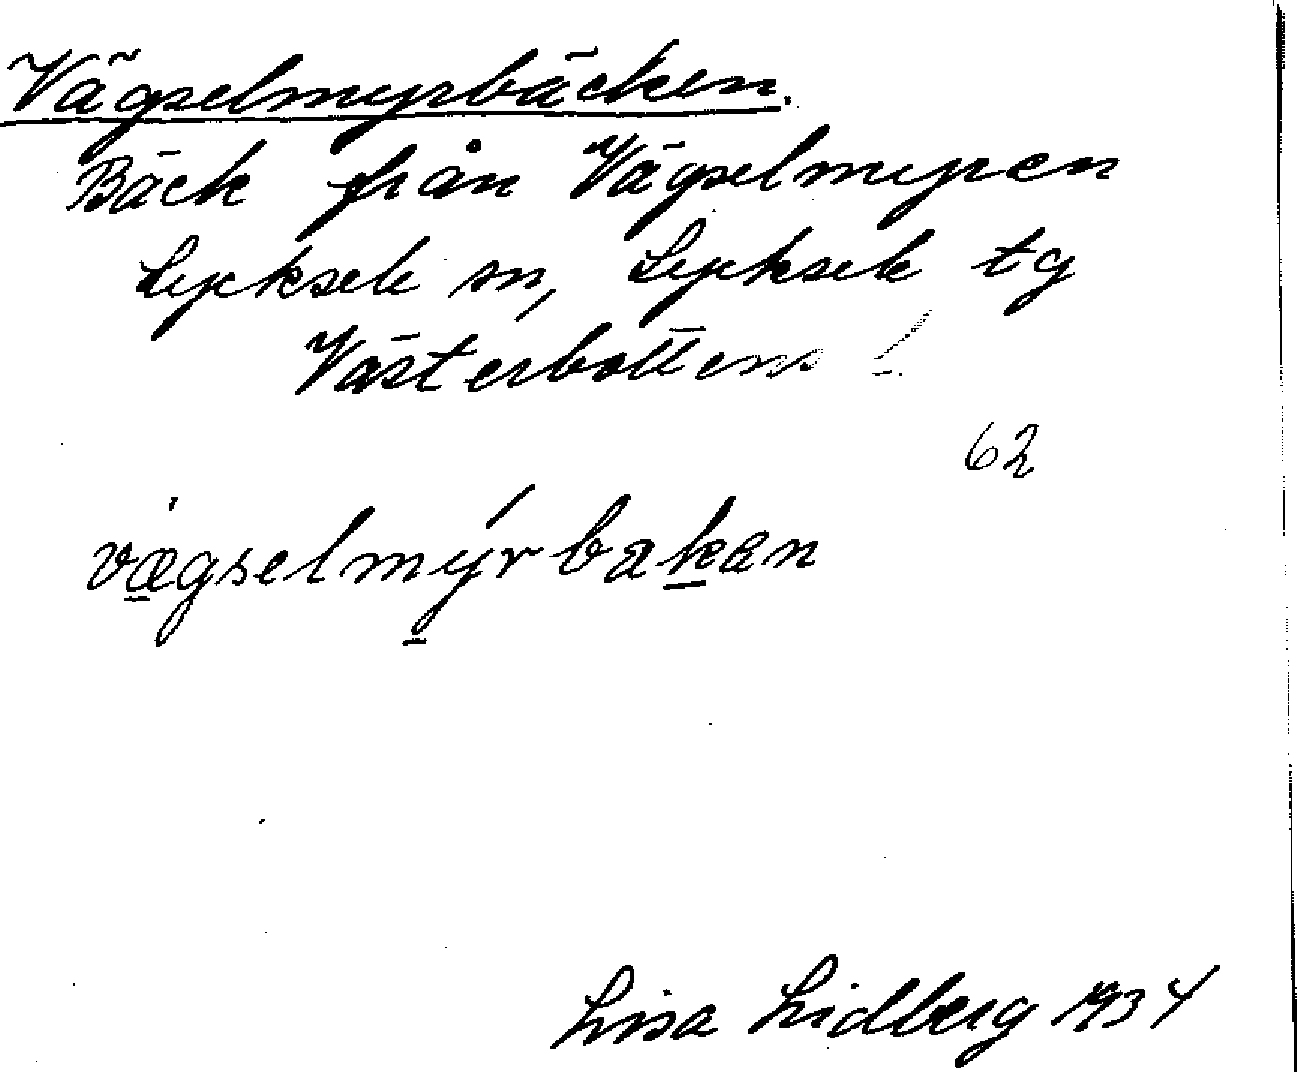 Vägselmyrbäcken.
Bäck från Vägselmyren
Lycksele sn, Lycksele tg
Västerbottens l.
62
vægselmýrbakan
Lisa Lidberg 1934